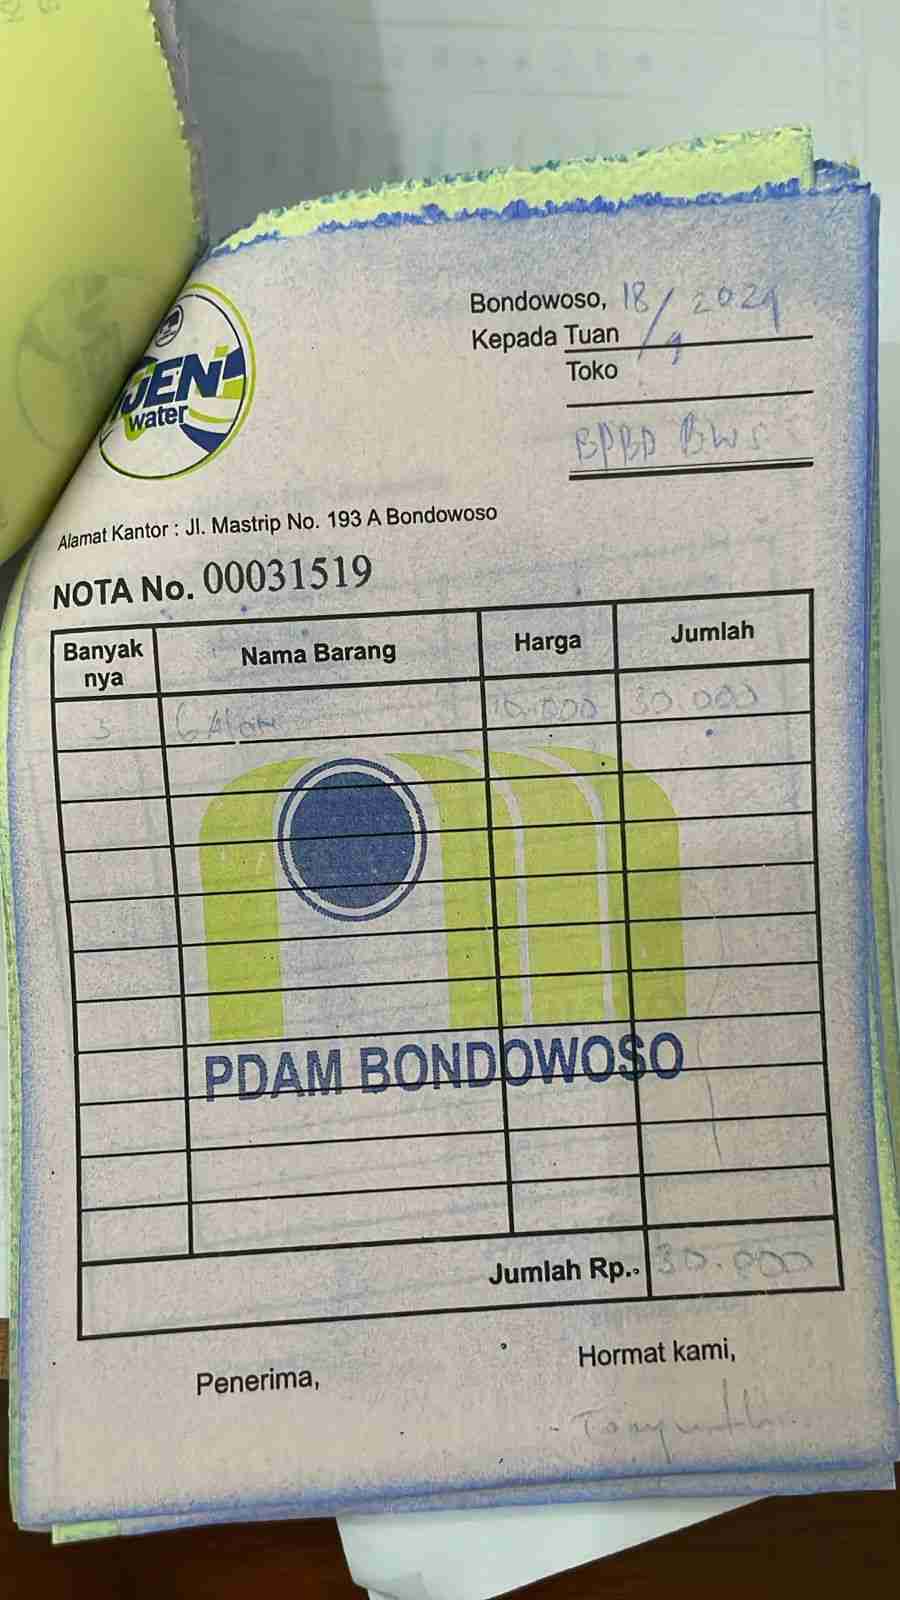 IJEN
water
Bondowoso, 18/9 2024
Kepada Tuan
Toko
BPBD BWS
Alamat Kantor : Jl. Mastrip No. 193 A Bondowoso
NOTA No. 00031519
Banyak nya Nama Barang Harga Jumlah
3 Galon 10.000 30.000
PDAM BONDOWOSO
Jumlah Rp. 30.000
Penerima, Hormat kami,